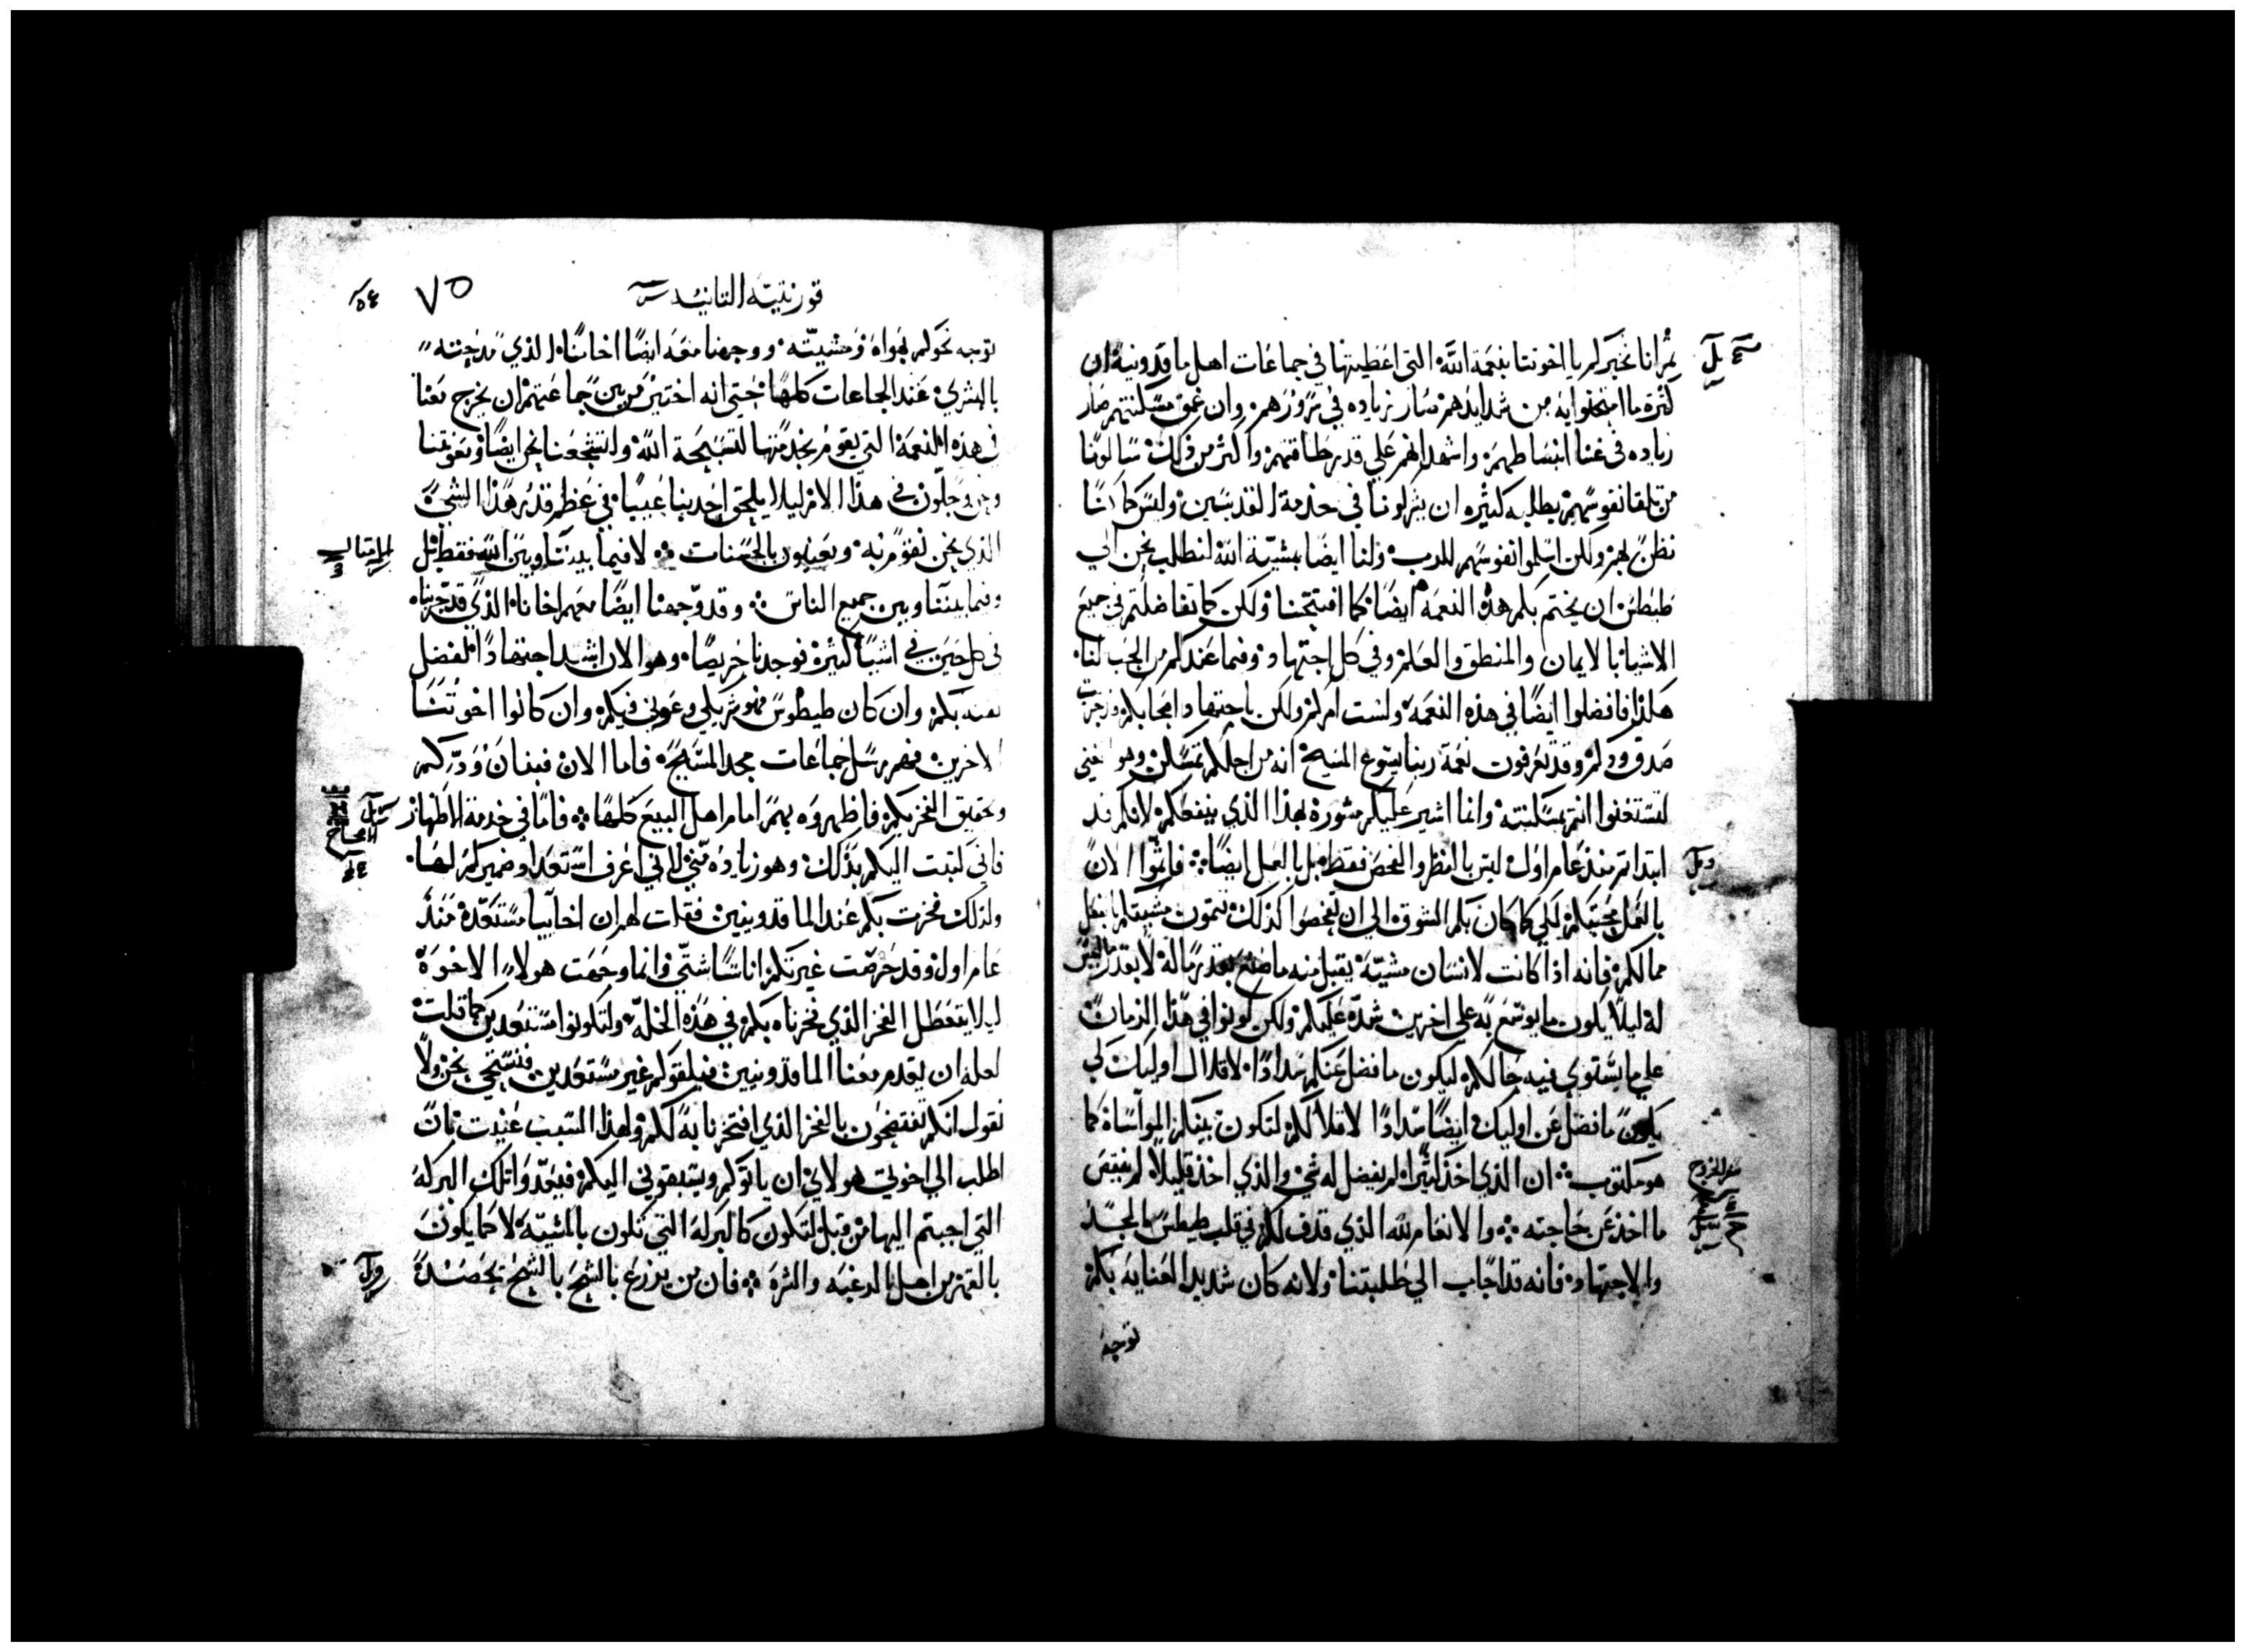 ثم انا نخبركم يا اخوتنا بنعمة الله التي اعطيتها في جماعات اهل ماقدونية ان
كثرة ما امتحنوا به من شدايدهم صار زياده في سرورهم وان عمق مسكنتهم صار
زياده في غنا انبساطهم واشهد انهم علي قدر طاقتهم واكثر من ذلك سالونا
من تلقا نفوسهم بطلبه كثيره ان يشركونا في خدمة القديسين وليس كما كنا
نظن بهم ولكن اسلموا نفوسهم للرب ولنا ايضا بمشية الله لنطلب نحن الي
طيطس ان يختم بكم هذه النعمه ايضا كما افتتحنا ولكن كما تفاضلتم في جميع
الاشيا بالايمان والمنطق والعلم وفي كل اجتهاد وفيما عندكم من الحب لنا
هكذا فافضلوا ايضا في هذه النعمه ولست امركم ولكن باجتهاد اصحابكم جربت
صدق ودكم وقد تعرفون نعمة ربنا يسوع المسيح انه من اجلكم تمسكن وهو الغني
لتستغنوا انتم بمسكنته وانما اشير عليكم مشوره بهذا الذي ينفعكم لانكم قد
ابتداتم منذ عام اول ليس بالنظر والفحص فقط بل بالعمل ايضا فاتموا الان
بالعمل محبتكم لكي كما كان بكم الشوق الي ان تفحصوا كذلك تتمون مشيتكم بالفعل
مما لكم فانه اذا كانت لانسان مشيّة يقبل منه ما صنع بقدر ماله لا بقدر ما ليس
له ليلا يكون ما يوسع به علي اخرين شدة عليكم ولكن كونوا في هذا الزمان
علي ما يستوي فيه حالكم ليكون ما فضل عنكم سدادا لاقلال اوليك لكي
يكون ما فضل عن اوليك ايضا سدادا لاقلالكم لتكون بينكم المواساة كما
هو مكتوب ان الذي اخذ كثيرا لم يفضل له شي والذي اخذ قليلا لم ينقص
ما اخذ عن حاجته والانعام لله الذي قذف لكم في قلب طيطس الجد
والاجتهاد فانه قد اجاب الي طلبتنا ولانه كان شديد العنايه بكم
توجه
سفر الخروج
قورنتيه الثانيه
٧٥
توجه نحوكم بهواه ومشيته ووجهنا معه ايضا اخانا الذي مدحته
بالبشري عند الجماعات كلها حتي انه اختير من بين جماعتهم ان يخرج معنا
في هذه النعمة التي يقوم بخدمتها لتسبيحة الله وانتجعنا نحن ايضا ومعونتنا
ونحن وجلون في هذا الامر ليلا يلحق احد بنا عيبا في عظم قدر هذا الشي
الذي نحن نقوم به ومعنيون بالحسنات لا فيما بيننا وبين الله فقط بل
وفيما بيننا وبين جميع الناس وقد وجهنا ايضا معهم اخانا الذي قد جربناه
في كل حين في اشيا كثيرة فوجدنا حريصا وهو الان اشد اجتهادا لفضل
بكم وان كان طيطوس فهو شريكي وعوني فيكم وان كانوا اخوتنا
الاخرين فهم رسل جماعات مجد المسيح فاما الان فبيان ودكم
وتحقيق الفخر بكم فاظهروه بهم امام اهل البيع كلها فاما في خدمة الاطهار
فاني كتبت اليكم بذلك وهو زياده مني لاني اعرف استعداد ضميركم لها
ولذلك فخرت بكم عند الماقدونيين فقلت لهم ان اخاييا مستعدة منذ
عام اول وقد حرصت غيرتكم اناسا شتي وانما وجهت هولاء الاخوة
ليلا يتعطل الفخر الذي فخرناه بكم في هذه الخلة ولتكونوا مستعدين كما قلت
لعله ان يقدم معنا الماقدونيين فيلقوكم غير مستعدين فنستحي نحن ولا
نقول انكم تفتضحون بالفخر الذي افتخرنا به لكم ولهذا السبب عنيت بان
اطلب الي اخوتي هولاي ان ياتوكم ويسبقوني اليكم فيعدوا تلك البركه
التي اجبتم اليها من قبل لتكون كالبركه التي تكون بالمشيّة لا كما يكون
بالقهر من اهل الرغبه والشره فان من يزرع بالشح بالشح يحصد